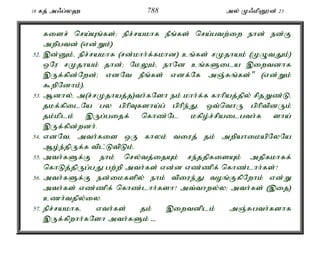 18 கத் அஃப்லஹ 788 அல் முஃமினூன் 23
களைச் செய்யுங்கள்; நிச்சயமாக நீங்கள் செய்பவற்றை நான் நன்கு
அறிபவன் (என்றும்)
52. இன்னும், நிச்சயமாக (சன்மார்க்கமான) உங்கள் சமுதாயம் (முழுவதும்)
ஒரே சமுதாயம் தான்; மேலும், நானே உங்களுடைய இறைவனாக
இருக்கின்றேன்; எனவே நீங்கள் எனக்கே அஞ்சுங்கள்" (என்றும்
கூறினோம்).
53. ஆனால், அ(ச்சமுதாயத்த)வர்களோ நம் மார்க்க காரியத்தில் சிதறுண்டு,
தமக்கிடையே பல பிரிவுகளாய்ப் பிரிந்து, ஒவ்வொரு பிரிவினரும்
தம்மிடம் இருப்பதைக் கொண்டே மகிழ்ச்சியடைபவர்க ளாய்
இருக்கின்றனர்.
54. எனவே, அவர்களை ஒரு காலம் வரைத் தம் அறியாமையிலேயே
ஆழ்ந்திருக்க விட்டுவிடும்.
55. அவர்களுக்கு நாம் செல்வத்தையும் சந்ததிகளையும் அதிகமாகக்
கொடுத்திருப்பது பற்றி அவர்கள் என்ன எண்ணிக் கொண்டார்கள்?
56. அவர்களுக்கு நன்மைகளில் நாம் விரைந்து வழங்குகிறோம் என்று
அவர்கள் எண்ணிக் கொண்டார்களா? அவ்வாறல்ல; அவர்கள் (இதை)
உணர்வதில்லை.
57. நிச்சயமாக, எவர்கள் தம் இறைவனிடம் அஞ்சுபவர்களாக
இருக்கிறார்களோ அவர்களும் ...